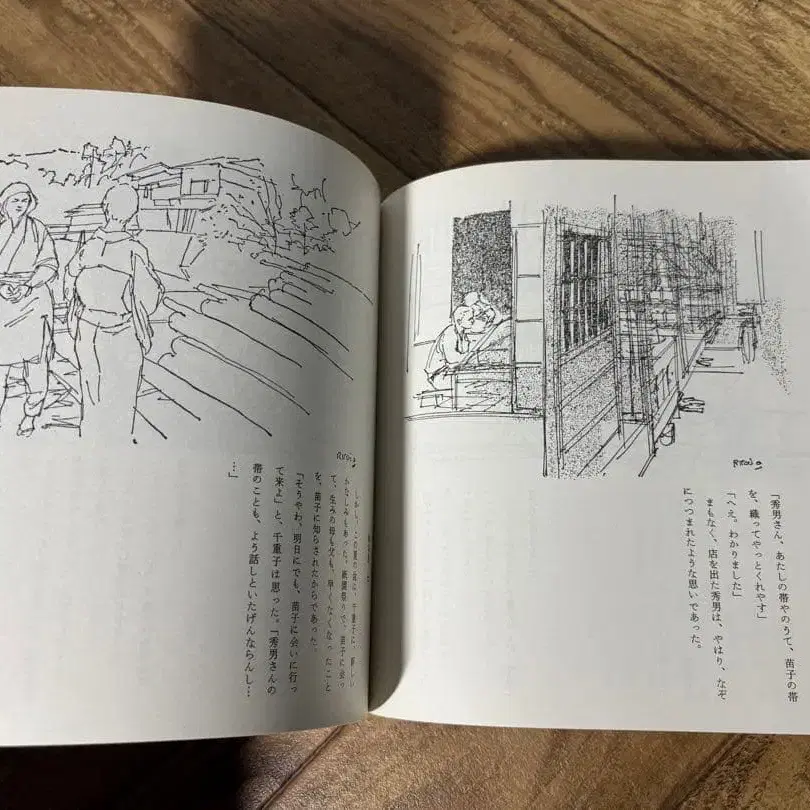 「秀男さん、あたしの帯やのうて、苗子の帯
を、織ってやっとくれやす」
「へえ。わかりました」
まもなく、店を出た秀男は、やはり、なぞ
につつまれたような思いであった。
しかし、この夏の、千重子に、新しい
かなしみもあった。祇園祭りで、苗子に会っ
て、生みの母も父も、早くなくなったこと
を、苗子に知らされたからであった。
「そうやわ、明日にでも、苗子に会いに行っ
て来よ」と、千重子は思った。「秀男さんの
帯のことも、よう話しといたげんならんし…
…」